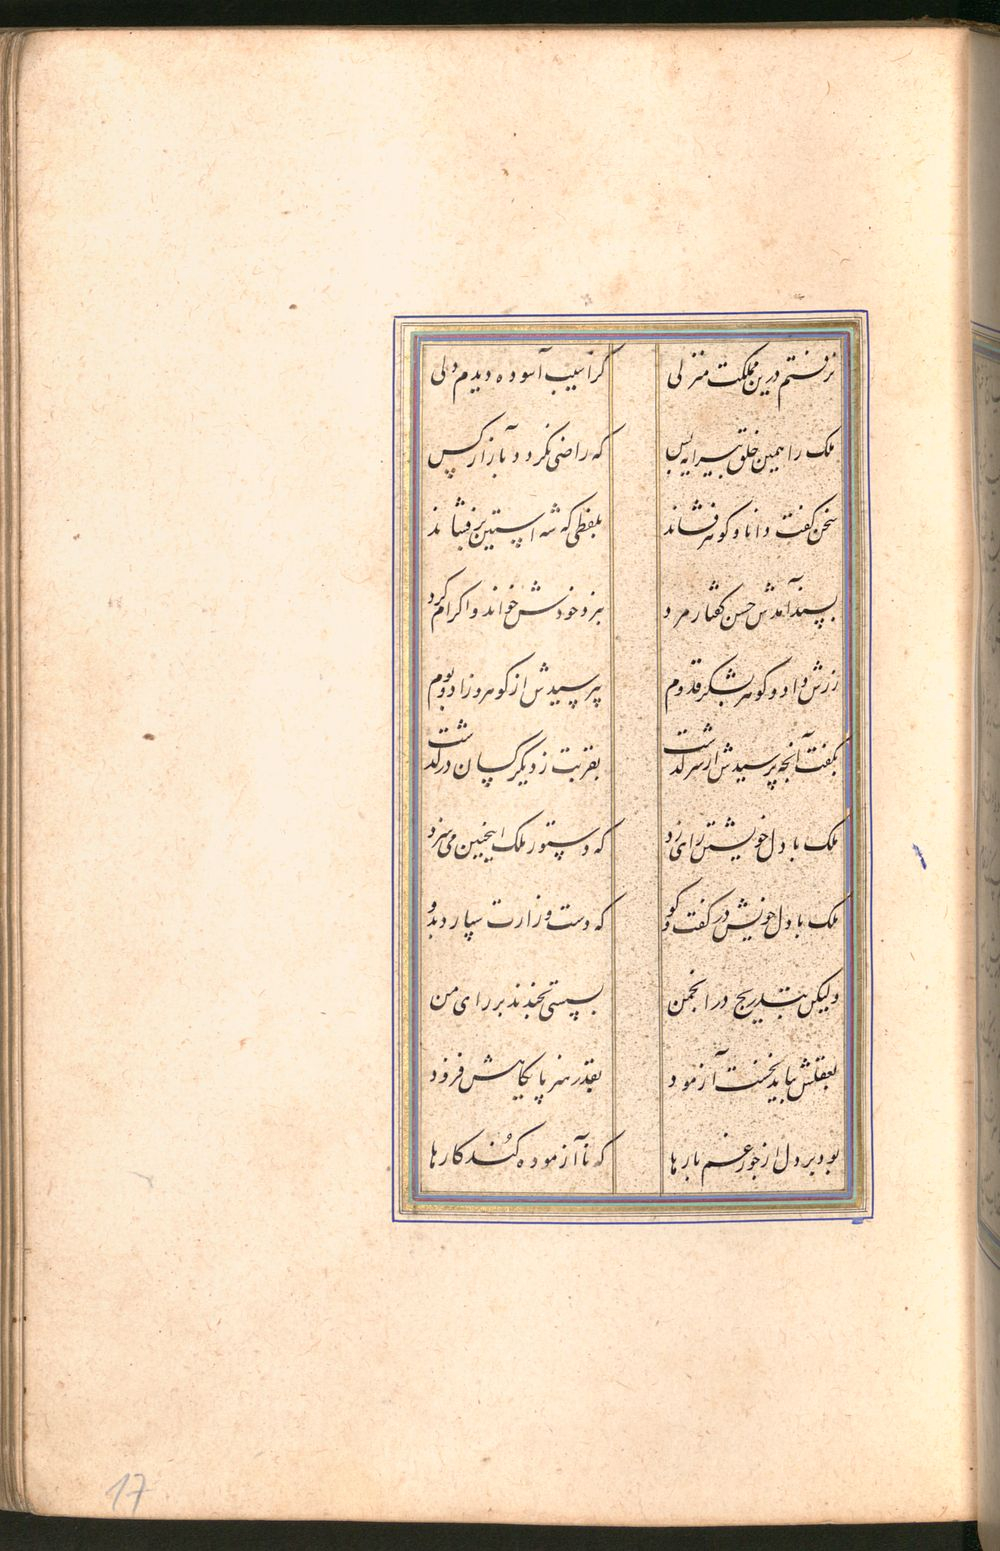 نرفتم درین مملکت منزلی کز آسیب آسوده دیدم دلی
ملک را همین خلق پیرایه بس که راضی نگردد بآزار کس
سخن گفت و دانا و گوهر فشاند بلفظی که شه آستین برفشاند
پسند آمدش حسن گفتار مرد بنزد خودش خواند و اکرام کرد
زرش داد و گوهر بشکر قدوم بپرسیدش از گوهر و زاد و بوم
بگفت آنچه پرسیدش از سرگذشت بقربت ز دیگر کسان درگذشت
ملک با دل خویشتن رای زد که دستور ملک اینچنین می‌سزد
ملک با دل خویش در گفت و گو که دست وزارت سپارد بدو
ولیکن بتدریج در انجمن بسستی نخندند بر رای من
بعقلش بباید نخست آزمود بقدر هنر پایگاهش فزود
بود بر دل از جور غم بارها که ناآزموده کند کارها
17